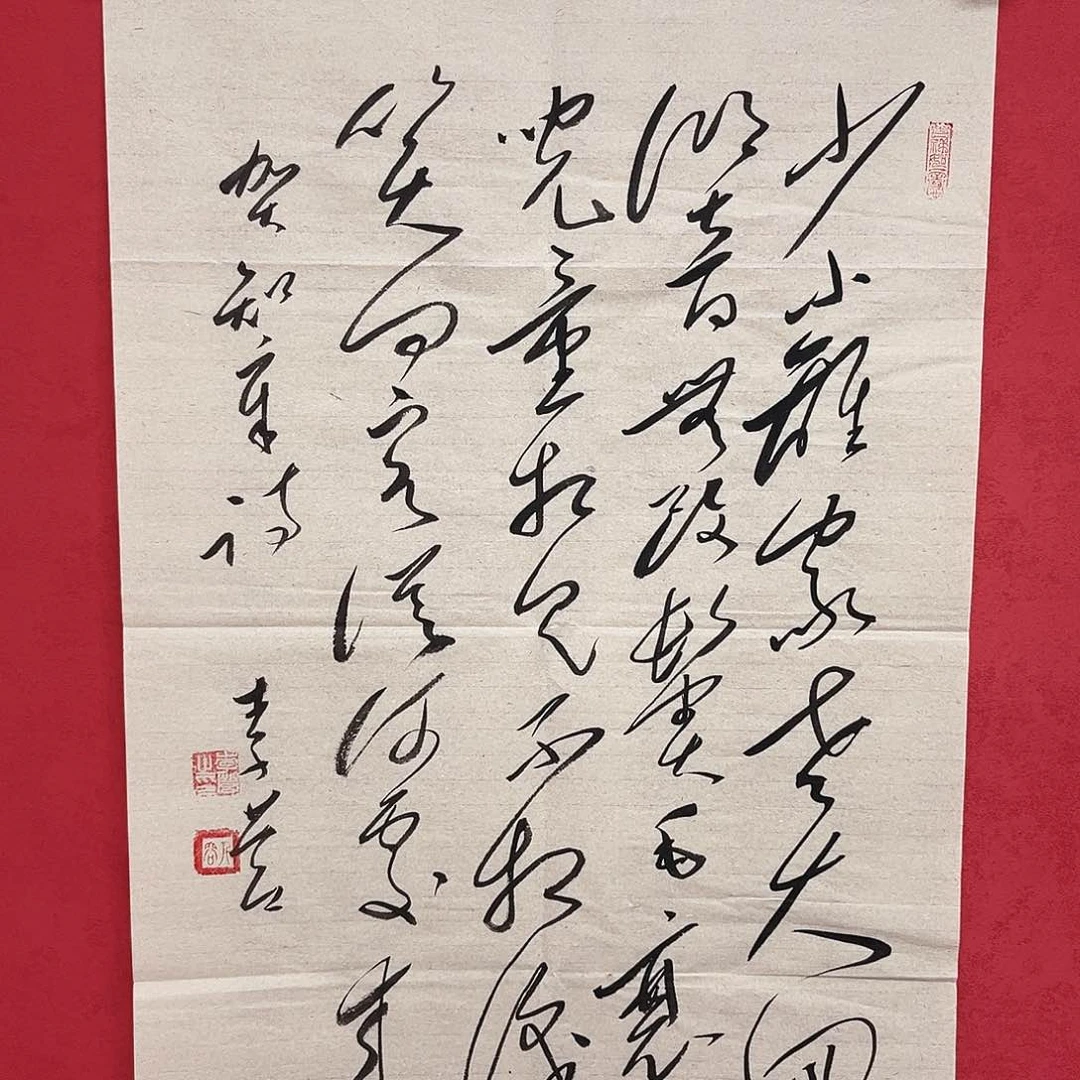 少小離家老大回
鄉音無改鬢毛衰
兒童相見不相識
笑問客從何處來
賀知章詩 李